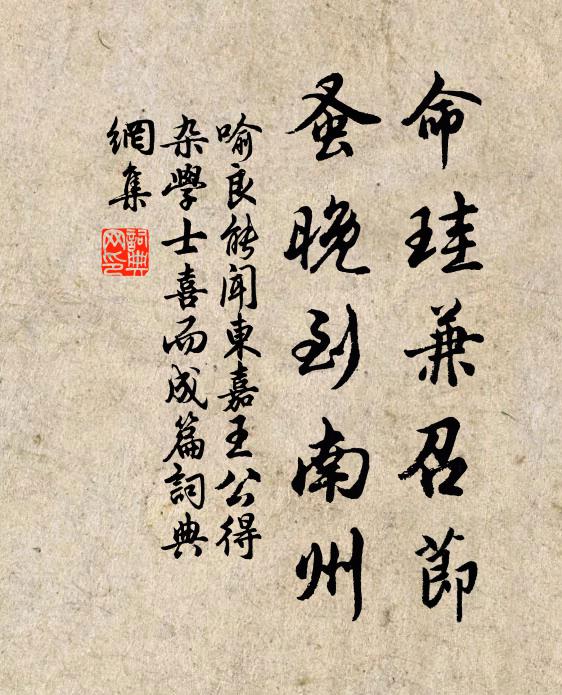 命珪兼召節
蚤晚到南州
喻良能聞東嘉王公得
杂學士喜而成篇詞典
網集
詞典網印